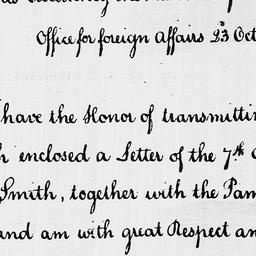 Office for foreign Affairs 23 Oct
have the Honor of transmittin
enclosed a Letter of the 7th
Smith, together with the Pam
and am with great Respect an